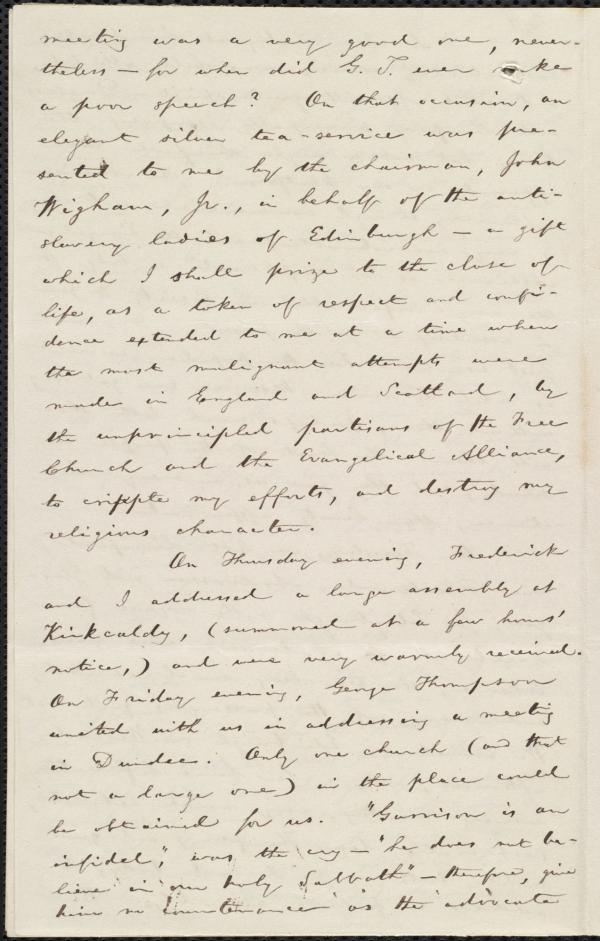 meeting was a very good one, never-
theless — for when did G. T. ever make
a poor speech? On that occasion, an
elegant silver tea-service was pre-
sented to me by the chairman, John
Wigham, Jr., in behalf of the anti-
slavery ladies of Edinburgh — a gift
which I shall prize to the close of
life, as a token of respect and confi-
dence extended to me at a time when
the most malignant attempts were
made in England and Scotland, by
the unprincipled partisans of the Free
Church and the Evangelical Alliance,
to cripple my efforts, and destroy my
religious character.
On Thursday evening, Frederick
and I addressed a large assembly at
Kirkcaldy, (summoned at a few hours'
notice,) and were very warmly received.
On Friday evening, George Thompson
united with us in addressing a meeting
in Dundee. Only one church (and that
not a large one) in the place could
be obtained for us. "Garrison is an
infidel," was the cry — "he does not be-
lieve in our holy Sabbath" — therefore, give
him no countenance as the advocate